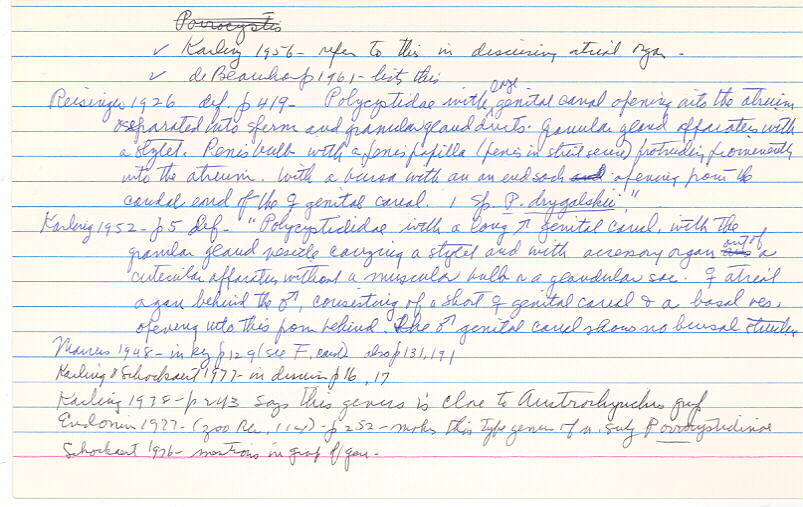 Porrocystis
✓ Karling 1956 - refer to this in discussing atrial organ.
✓ de Beauchamp 1961 - lists this
Reisinger 1926 def. p 419 - Polycystidae with long genital canal opening into the atrium
separated into sperm and granular gland ducts. Granular gland apparatus with
a stylet. Penis bulb with a penis papilla (penis in strict sense) protruding prominently
into the atrium. With a bursa with an an end sack and opening from the
caudal end of the ♀ genital canal. 1 sp. P. drygalskii."
Karling 1952 - p5 def - "Polycystididae with a long ♂ genital canal, with the
granular gland vesicle carrying a stylet and with accessory organ out of a
cuticular apparatus without a muscular bulb or a glandular sac. ♀ atrial
organ behind the ♂, consisting of a short ♀ genital canal & a basal ves.
opening into this from behind. The ♂ genital canal shows no bursal
Marcus 1948 - in key p 129 (see F. card) also p 131, 191
Karling & Schockaert 1977 - in discussion p 16, 17
Karling 1978 - p 243 says this genus is close to Austrorhynchus
Evdonin 1977 - (Zoo Rec, 114) - p 252 - makes this type genus of n. subf Porrocystidinae
Schockaert 1976 - mentions in graf of gen -